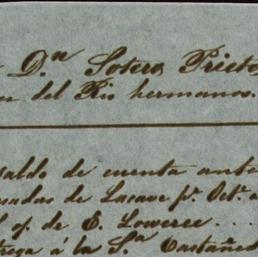 Dⁿ Sotero Prieto
del Rio hermanos.
saldo de cuenta ante
de Lasave pʳ Octᵉ a
of. de E. Loweree...
trega á la Sᵃ Castañed